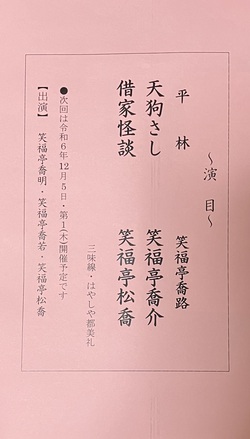 ～演目～
平林 笑福亭喬路
天狗さし 笑福亭喬介
借家怪談 笑福亭松喬
三味線・はやしや都美礼
●次回は令和6年12月5日・第1(木)開催予定です
【出演】 笑福亭喬明・笑福亭喬若・笑福亭松喬